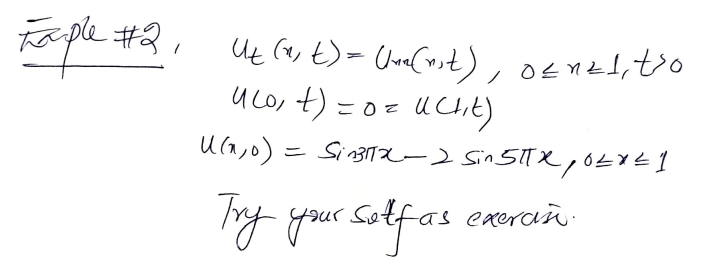 Example #2, u_t (x, t) = u_xx(x, t), 0 ≤ x ≤ 1, t>0
u(0, t) = 0 = u(1, t)
u(x, 0) = Sin3πx - 2 sin 5πx, 0 ≤ x ≤ 1
Try your self as exercise.